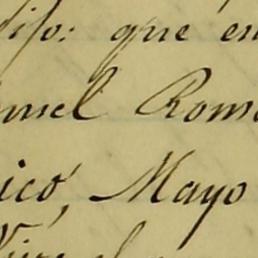 dijo: que en
nuel Rom
ico, Mayo